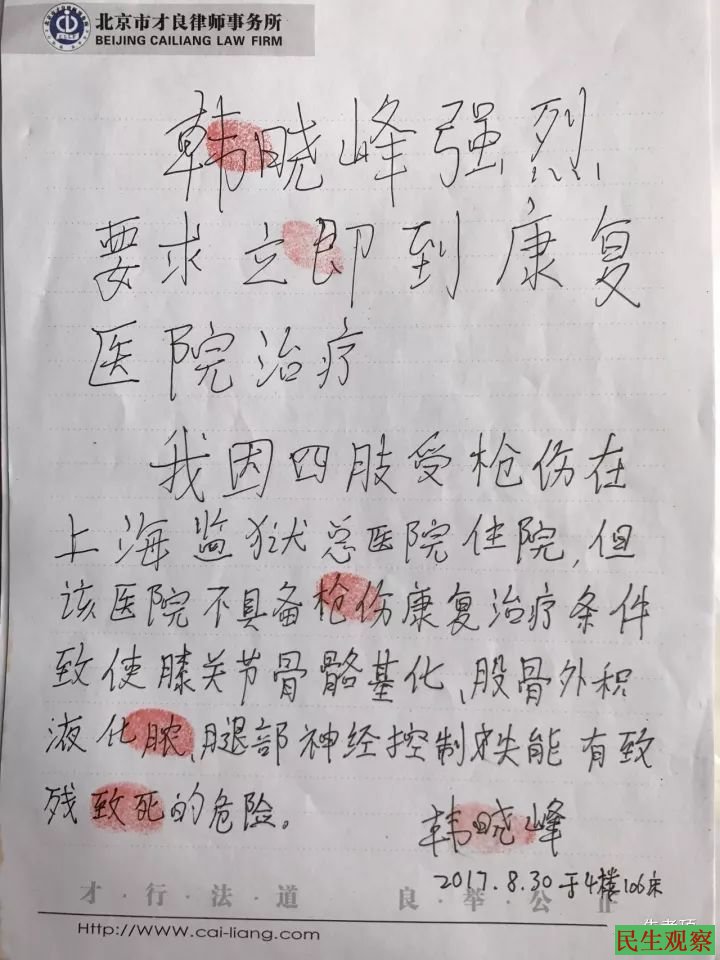 北京市才良律师事务所
BEIJING CAILIANG LAW FIRM
韩晓峰强烈
要求立即到康复
医院治疗
我因四肢受枪伤在
上海监狱总医院住院,但
该医院不具备枪伤康复治疗条件
致使膝关节骨骼基化、股骨外积
液化脓、腿部神经控制失能 有致
残致死的危险。
韩晓峰
2017.8.30于4楼106床
才·行·法·道 良·举·公·正
Http://www.cai-liang.com
民生观察